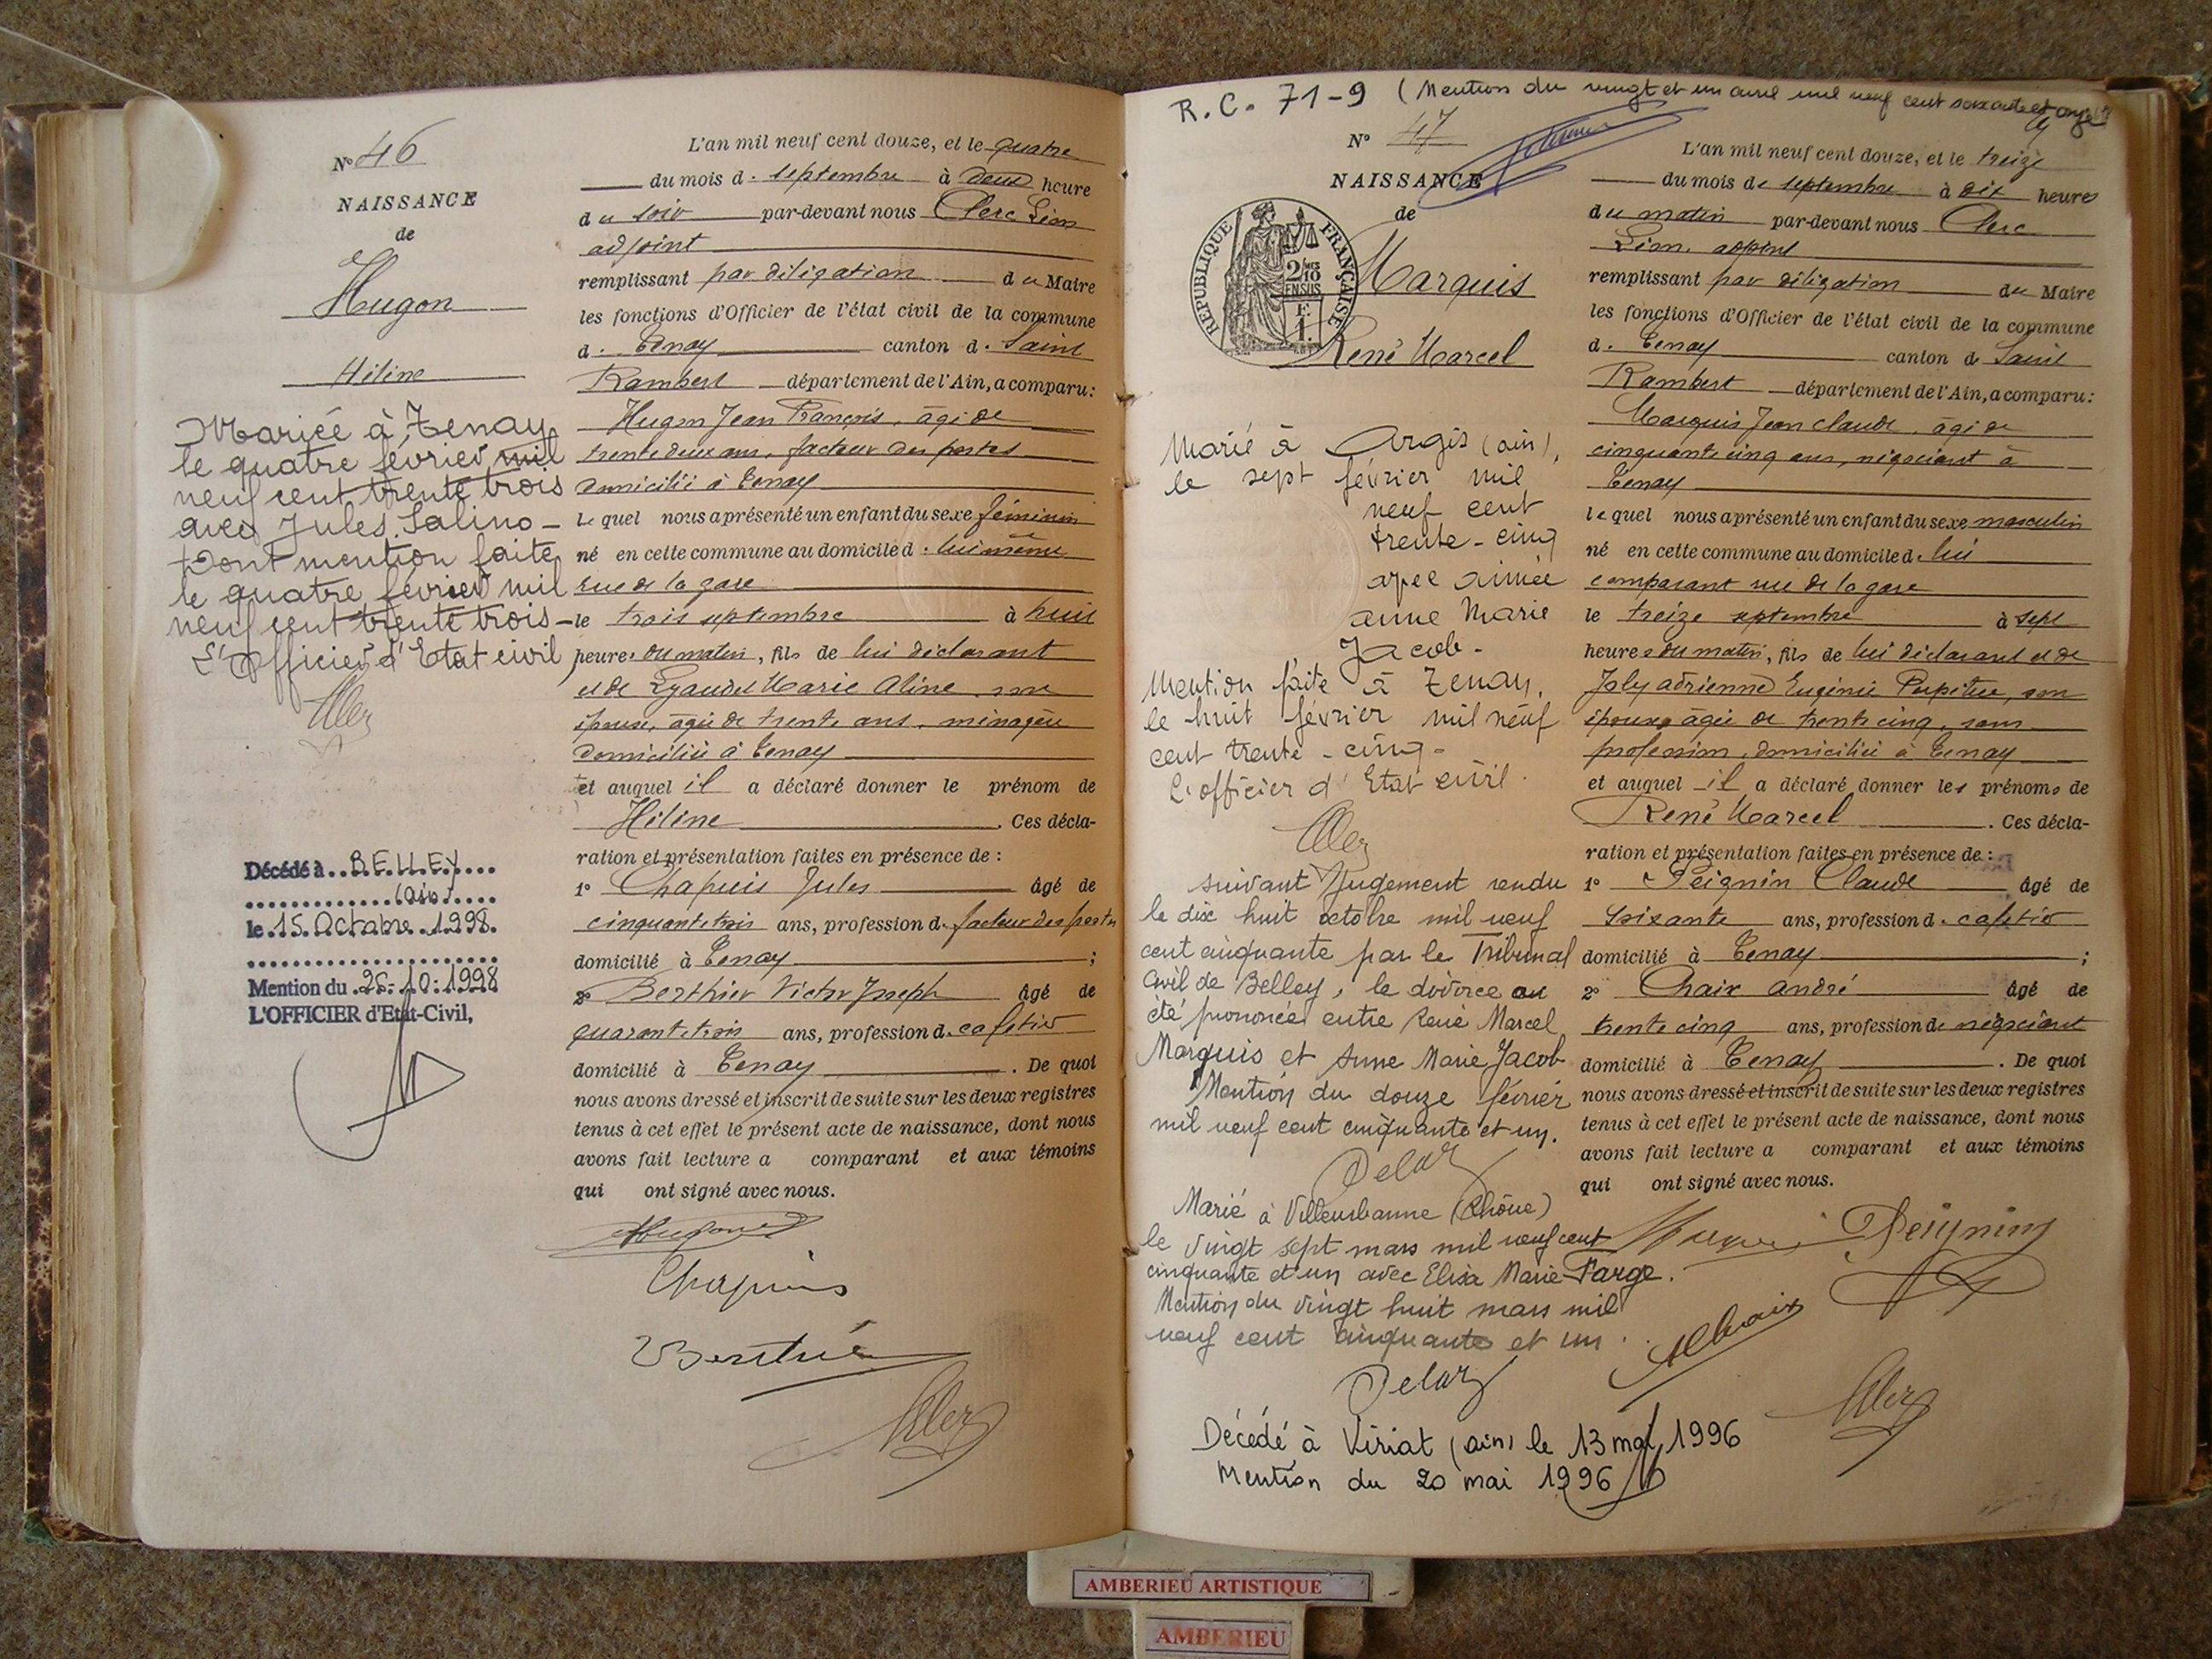 N° 46
NAISSANCE
de
Hugon
Hélène
Mariée à Tenay
le quatre février mil
neuf cent trente trois
avec Jules Salino -
Dont mention faite
le quatre février mil
neuf cent trente trois -
L'Officier d'Etat civil
Décédé à ..BELLEY...
(ain)
le .15. Octobre .1998.
Mention du .26.10.1998
L'OFFICIER d'Etat-Civil,
L'an mil neuf cent douze, et le quatre
du mois de septembre à deux heure
du soir par-devant nous Clerc Léon
adjoint
remplissant par délégation du Maire
les fonctions d'Officier de l'état civil de la commune
de Tenay canton de Saint
Rambert département de l'Ain, a comparu:
Hugon Jean François, âgé de
trente deux ans, facteur des postes
domicilié à Tenay
Lequel nous a présenté un enfant du sexe féminin
né en cette commune au domicile de lui même
rue de la gare
le trois septembre à huit
heures du matin, fils de lui déclarant
et de Marie Aline son
épouse, âgée de trente ans, ménagère
domiciliée à Tenay
et auquel il a déclaré donner le prénom de
Hélène. Ces décla-
ration et présentation faites en présence de :
1° Chapuis Jules âgé de
cinquante trois ans, profession de facteur des postes
domicilié à Tenay ;
2° Berthier Victor Joseph âgé de
quarante trois ans, profession de cafetier
domicilié à Tenay. De quoi
nous avons dressé et inscrit de suite sur les deux registres
tenus à cet effet le présent acte de naissance, dont nous
avons fait lecture a comparant et aux témoins
qui ont signé avec nous.
Hugon
Chapuis
Berthier
R.C. 71-9 (Mention du vingt et un avril mil neuf cent soixante et onze)
N° 47
NAISSANCE
de
REPUBLIQUE FRANÇAISE
2/10 MES
EN SUS
F.
1.
Marquis
René Marcel
Marié à Argis (ain),
le sept février mil
neuf cent
trente-cinq
avec aimée
anne Marie
Jacob.
Mention faite à Tenay,
le huit février mil neuf
cent trente-cinq.
L'officier d'Etat civil.
suivant Jugement rendu
le dix huit octobre mil neuf
cent cinquante par le Tribunal
Civil de Belley, le divorce a
été prononcé entre René Marcel
Marquis et Anne Marie Jacob
Mention du douze février
mil neuf cent cinquante et un.
Marié à Villeurbanne (Rhône)
le vingt sept mars mil neuf cent
cinquante et un avec Elisa Marie Farge.
Mention du vingt huit mars mil
neuf cent cinquante et un.
Décédé à Viriat (ain) le 13 mai 1996
Mention du 20 mai 1996
L'an mil neuf cent douze, et le treize
du mois de septembre à dix heures
du matin par-devant nous Clerc
Léon, adjoint
remplissant par délégation du Maire
les fonctions d'Officier de l'état civil de la commune
de Tenay canton de Saint
Rambert département de l'Ain, a comparu:
Marquis Jean Claude, âgé de
cinquante cinq ans, négociant à
Tenay
lequel nous a présenté un enfant du sexe masculin
né en cette commune au domicile de lui
comparant rue de la gare
le treize septembre à sept
heures du matin, fils de lui déclarant et de
Joly Adrienne Eugénie, son
épouse âgée de trente cinq, sans
profession, domiciliée à Tenay
et auquel il a déclaré donner les prénoms de
René Marcel. Ces décla-
ration et présentation faites en présence de :
1° Peignin Claude âgé de
soixante ans, profession de cafetier
domicilié à Tenay ;
2° Chaix André âgé de
trente cinq ans, profession de négociant
domicilié à Tenay. De quoi
nous avons dressé et inscrit de suite sur les deux registres
tenus à cet effet le présent acte de naissance, dont nous
avons fait lecture a comparant et aux témoins
qui ont signé avec nous.
Peignin
AChaix
AMBERIEU ARTISTIQUE
AMBERIEU